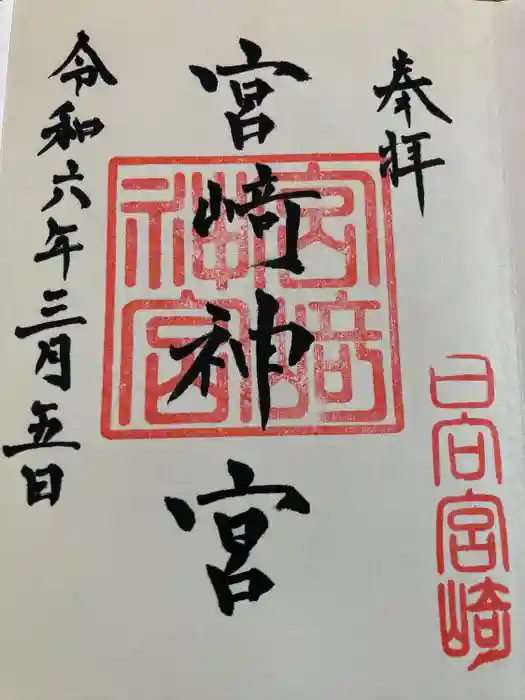 奉拝
日向宮崎
宮﨑神宮
宮﨑神宮
令和六年三月五日